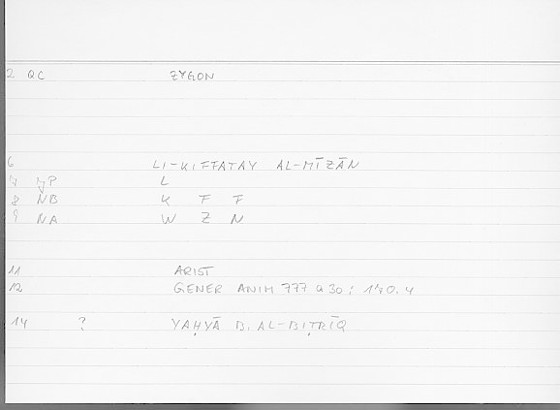 2 QC ZYGON
6 LI-KIFFATAY AL-MĪZĀN
7 L
8 NB K F F
9 NA W Z N
11 ARIST
12 GENER ANIM 777 a 30; 170.4
14 ? YAḤYĀ B. AL-BIṬRĪQ